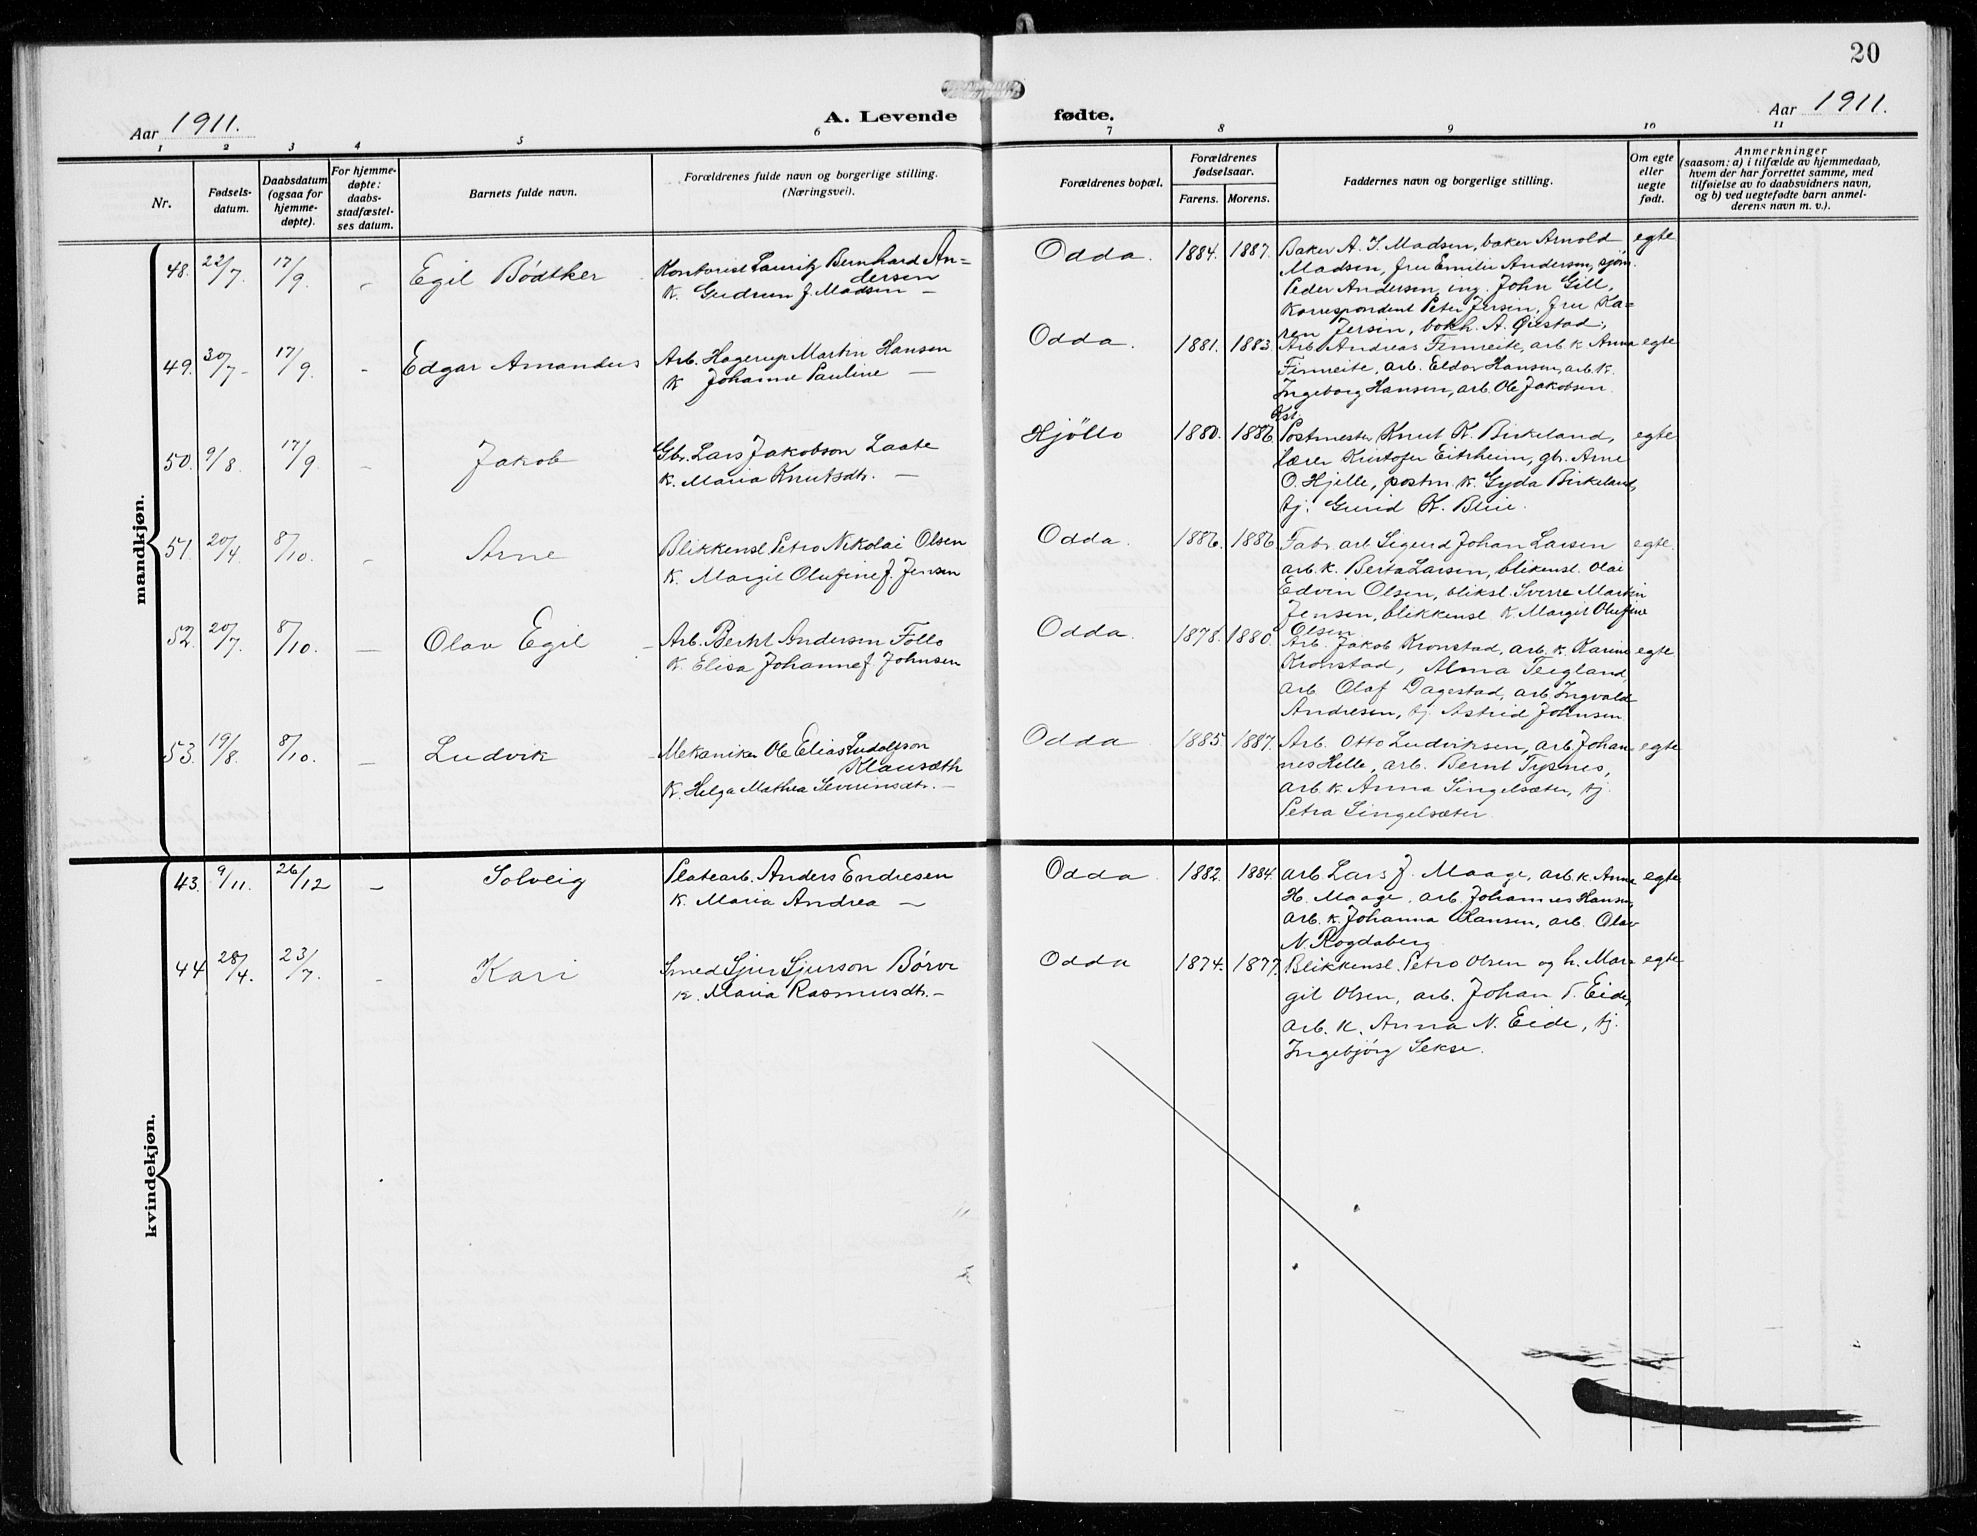 20
Aar 1911.
A. Levende fødte.
Aar 1911.
1 2 3 4 5 6 7 8 9 10 11
Nr.
Fødsels-
datum.
Daabsdatum
(ogsaa for
hjemme-
døpte).
For hjemme-
døpte:
daabs-
stadfæstel-
ses datum.
Barnets fulde navn.
Forældrenes fulde navn og borgerlige stilling.
(Næringsvei).
Forældrenes bopæl.
Forældrenes
fødselsaar.
Farens. Morens.
Faddernes navn og borgerlige stilling.
Om egte
eller
uegte
født.
Anmerkninger
(saasom: a) i tilfælde av hjemmedaab,
hvem der har forrettet samme, med
tilføielse av to daabsvidners navn,
og b) ved uegtefødte barn anmel-
derens navn m. v.).
mandkjøn.
48. 22/7. 17/9. - Egil Bødtker
Kontorist Lauritz Bernhard An=
dersen
K. Gudrun f. Madsen —
Odda. 1884. 1887.
Baker A. J. Madsen, baker Arnold
Madsen, fru Emilie Andersen, sjøm.
Peder Andersen, ing. John Gill,
Korrespondent Peter Jersin, fru Ka=
ren Jersin, bokh. A. Øistad.
egte
49. 30/7- 17/9. - Edgar Amandus
Arb. Hagerup Martin Hansen
K Johanne Pauline —
Odda. 1881. 1883.
Arb. Andreas Finneite, arb. k. Anna
Finneite, arb. Eldor Hansen, arb. k.
Ingeborg Hansen, arb. Ole Jakobsen.
egte
50. 9/8. 17/9. - Jakob
Gbr. Lars Jakobson Laate
K. Maria Knutsdtr. —
Hjøllo 1880. 1886.
Postmester Knut K. Birkeland,
lærer Kristofer Eitrheim, gb. Arne
O. Hjelle, postm. k. Gyda Birkeland,
tj. Gurid K. Bleie.
egte
51. 20/4. 8/10. - Arne
Blikkensl. Petro Nikolai Olsen
K. Margit Olufine f. Jensen
Odda. 1886. 1886.
Fabr. arb. Sigurd Johan Larsen
arb. k. Berta Larsen, blikensl. Olai
Edvin Olsen, bliksl. Sverre Martin
Jensen, blikkensl. k. Margit Olufine
Olsen
egte.
52. 20/7. 8/10. — Olav Egil
Arb. Bernt Andersen Follo
K. Elisa Johanne f. Johnsen
Odda. 1878. 1880.
Arb. Jakob Kronstad, arb. k. Karine
Kronstad, Alma Teigland,
arb. Olaf Dagestad, arb. Ingvald
Andresen, tj. Astrid Johnsen
egte
53. 19/8. 8/10. — Ludvik
Mekaniker Ole Elias Ludolfson
Klausæth
K. Helga Mathea Severinsdtr. —
Odda. 1885. 1887.
Arb. Otto Ludviksen, arb. Johan
nes Helle, arb. Bernt Tysnes,
arb. k. Anna Singelsæter, tj.
Petra Singelsæter.
egte
kvindekjøn.
43. 9/11. 26/12 — Solveig
Platearb. Anders Endresen
K. Maria Andrea —
Odda. 1882. 1884.
arb Lars J. Maage, arb. k. Anna
H. Maage, arb. Johannes Hansen,
arb. k. Johanna Hansen, arb. Olav
N. Rogdaberg
egte
44 28/4. 23/7. - Kari
Smed Sjur Sjurson Børve
K. Maria Rasmusdtr. —
Odda 1874. 1877.
Blikkensl. Petro Olsen og h. Mar
git Olsen, arb. Johan T. Eide,
arb. k. Anna N. Eide, tj.
Ingebjørg Sekse.
egte